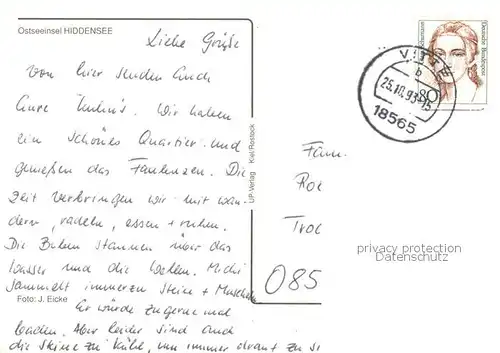 Ostseeinsel HIDDENSEE
Liebe Grüße
von hier senden Euch
Eure Kuhn's. Wir haben
ein schönes Quartier und
genießen das Faulenzen. Die
Zeit verbringen wir mit wan
dern, radeln, essen + ruhen.
Die Buben staunen über das
Wasser und die Wellen. Michi
sammelt immerzu Steine + Muscheln
Foto: J. Eicke
Er würde zu gerne mal
baden. Aber leider sind auch
die Steine zu kühl, um immer drauf zu si
UP-Verlag Kiel/Rostock
Deutsche Bundespost
80
VITTE
b
25.10.93-15
18565
Fam.
Roe
Troc
085
privacy protection
Datenschutz